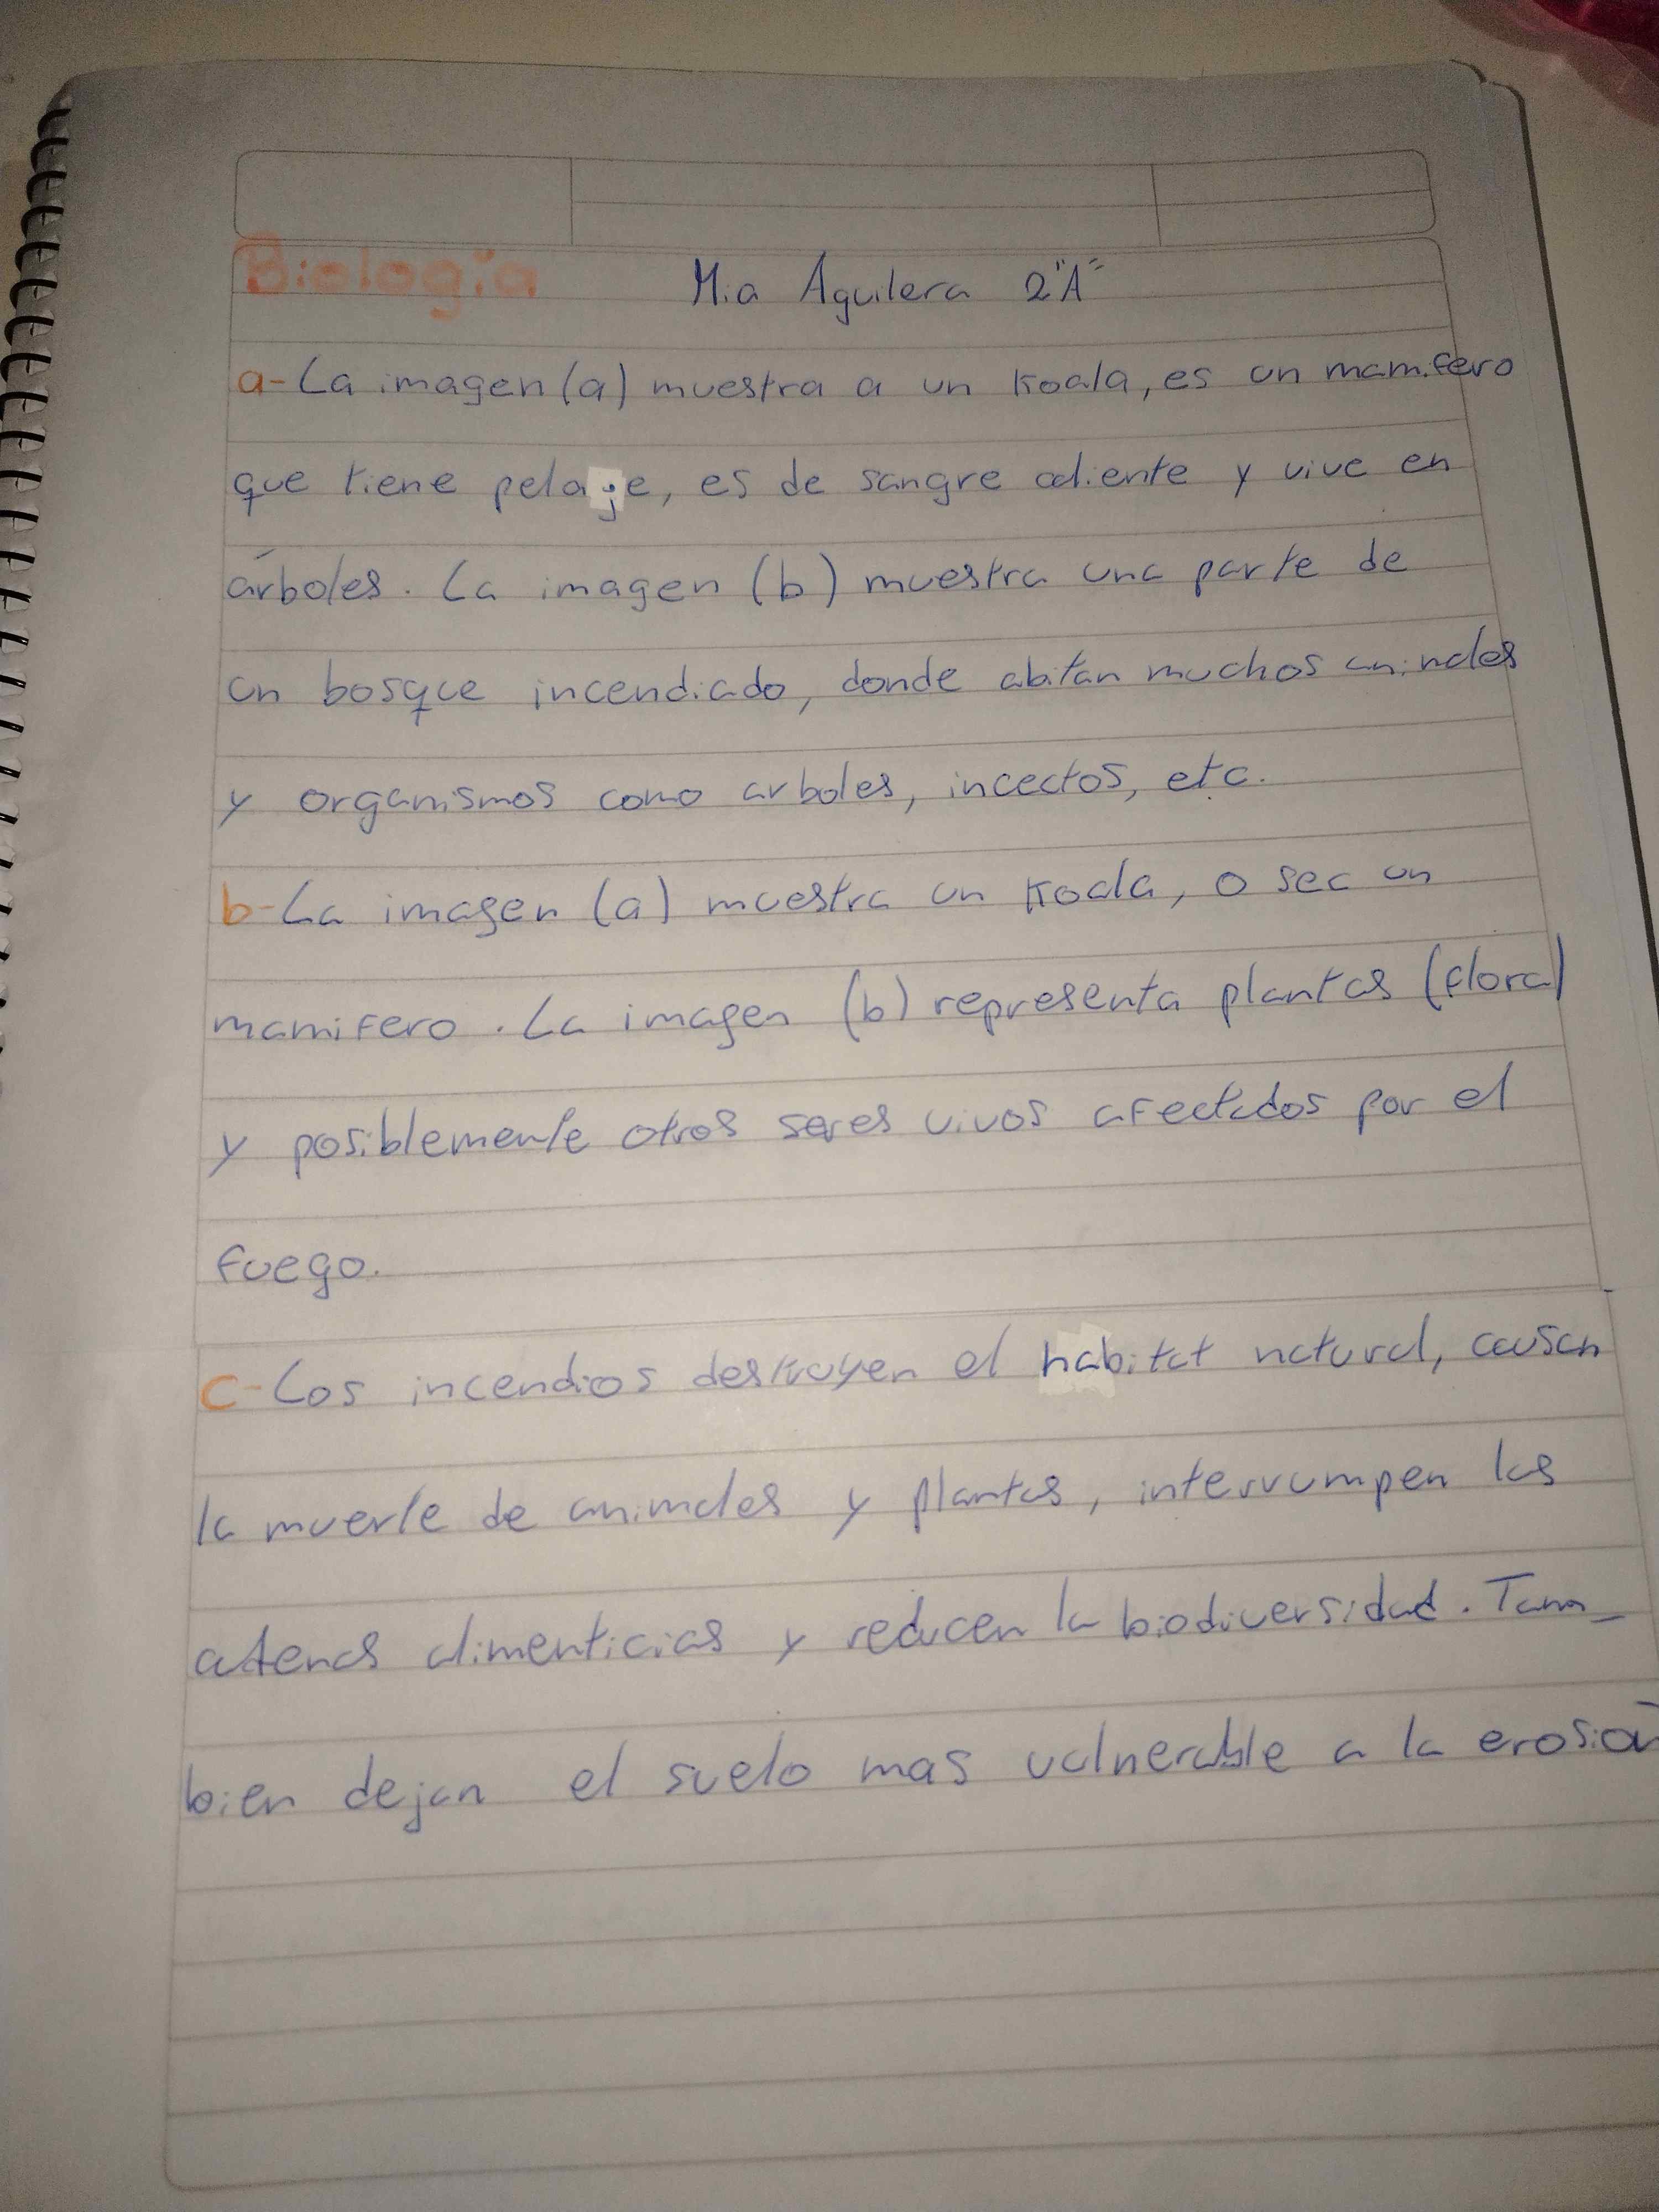 Biologia Mia Aguilera 2"A"
a- La imagen (a) muestra a un koala, es un mamifero
que tiene pelaje, es de sangre caliente y vive en
árboles. La imagen (b) muestra una parte de
un bosque incendiado, donde abitan muchos animales
y organismos como arboles, incectos, etc.
b- La imagen (a) muestra un koala, o sea un
mamifero. La imagen (b) representa plantas (flora)
y posiblemente otros seres vivos afectados por el
fuego.
c- Los incendios destruyen el habitat natural, causan
la muerte de animales y plantas, interrumpen las
alimenticias y reducen la biodiversidad. Tam_
bien dejan el suelo mas vulnerable a la erosión